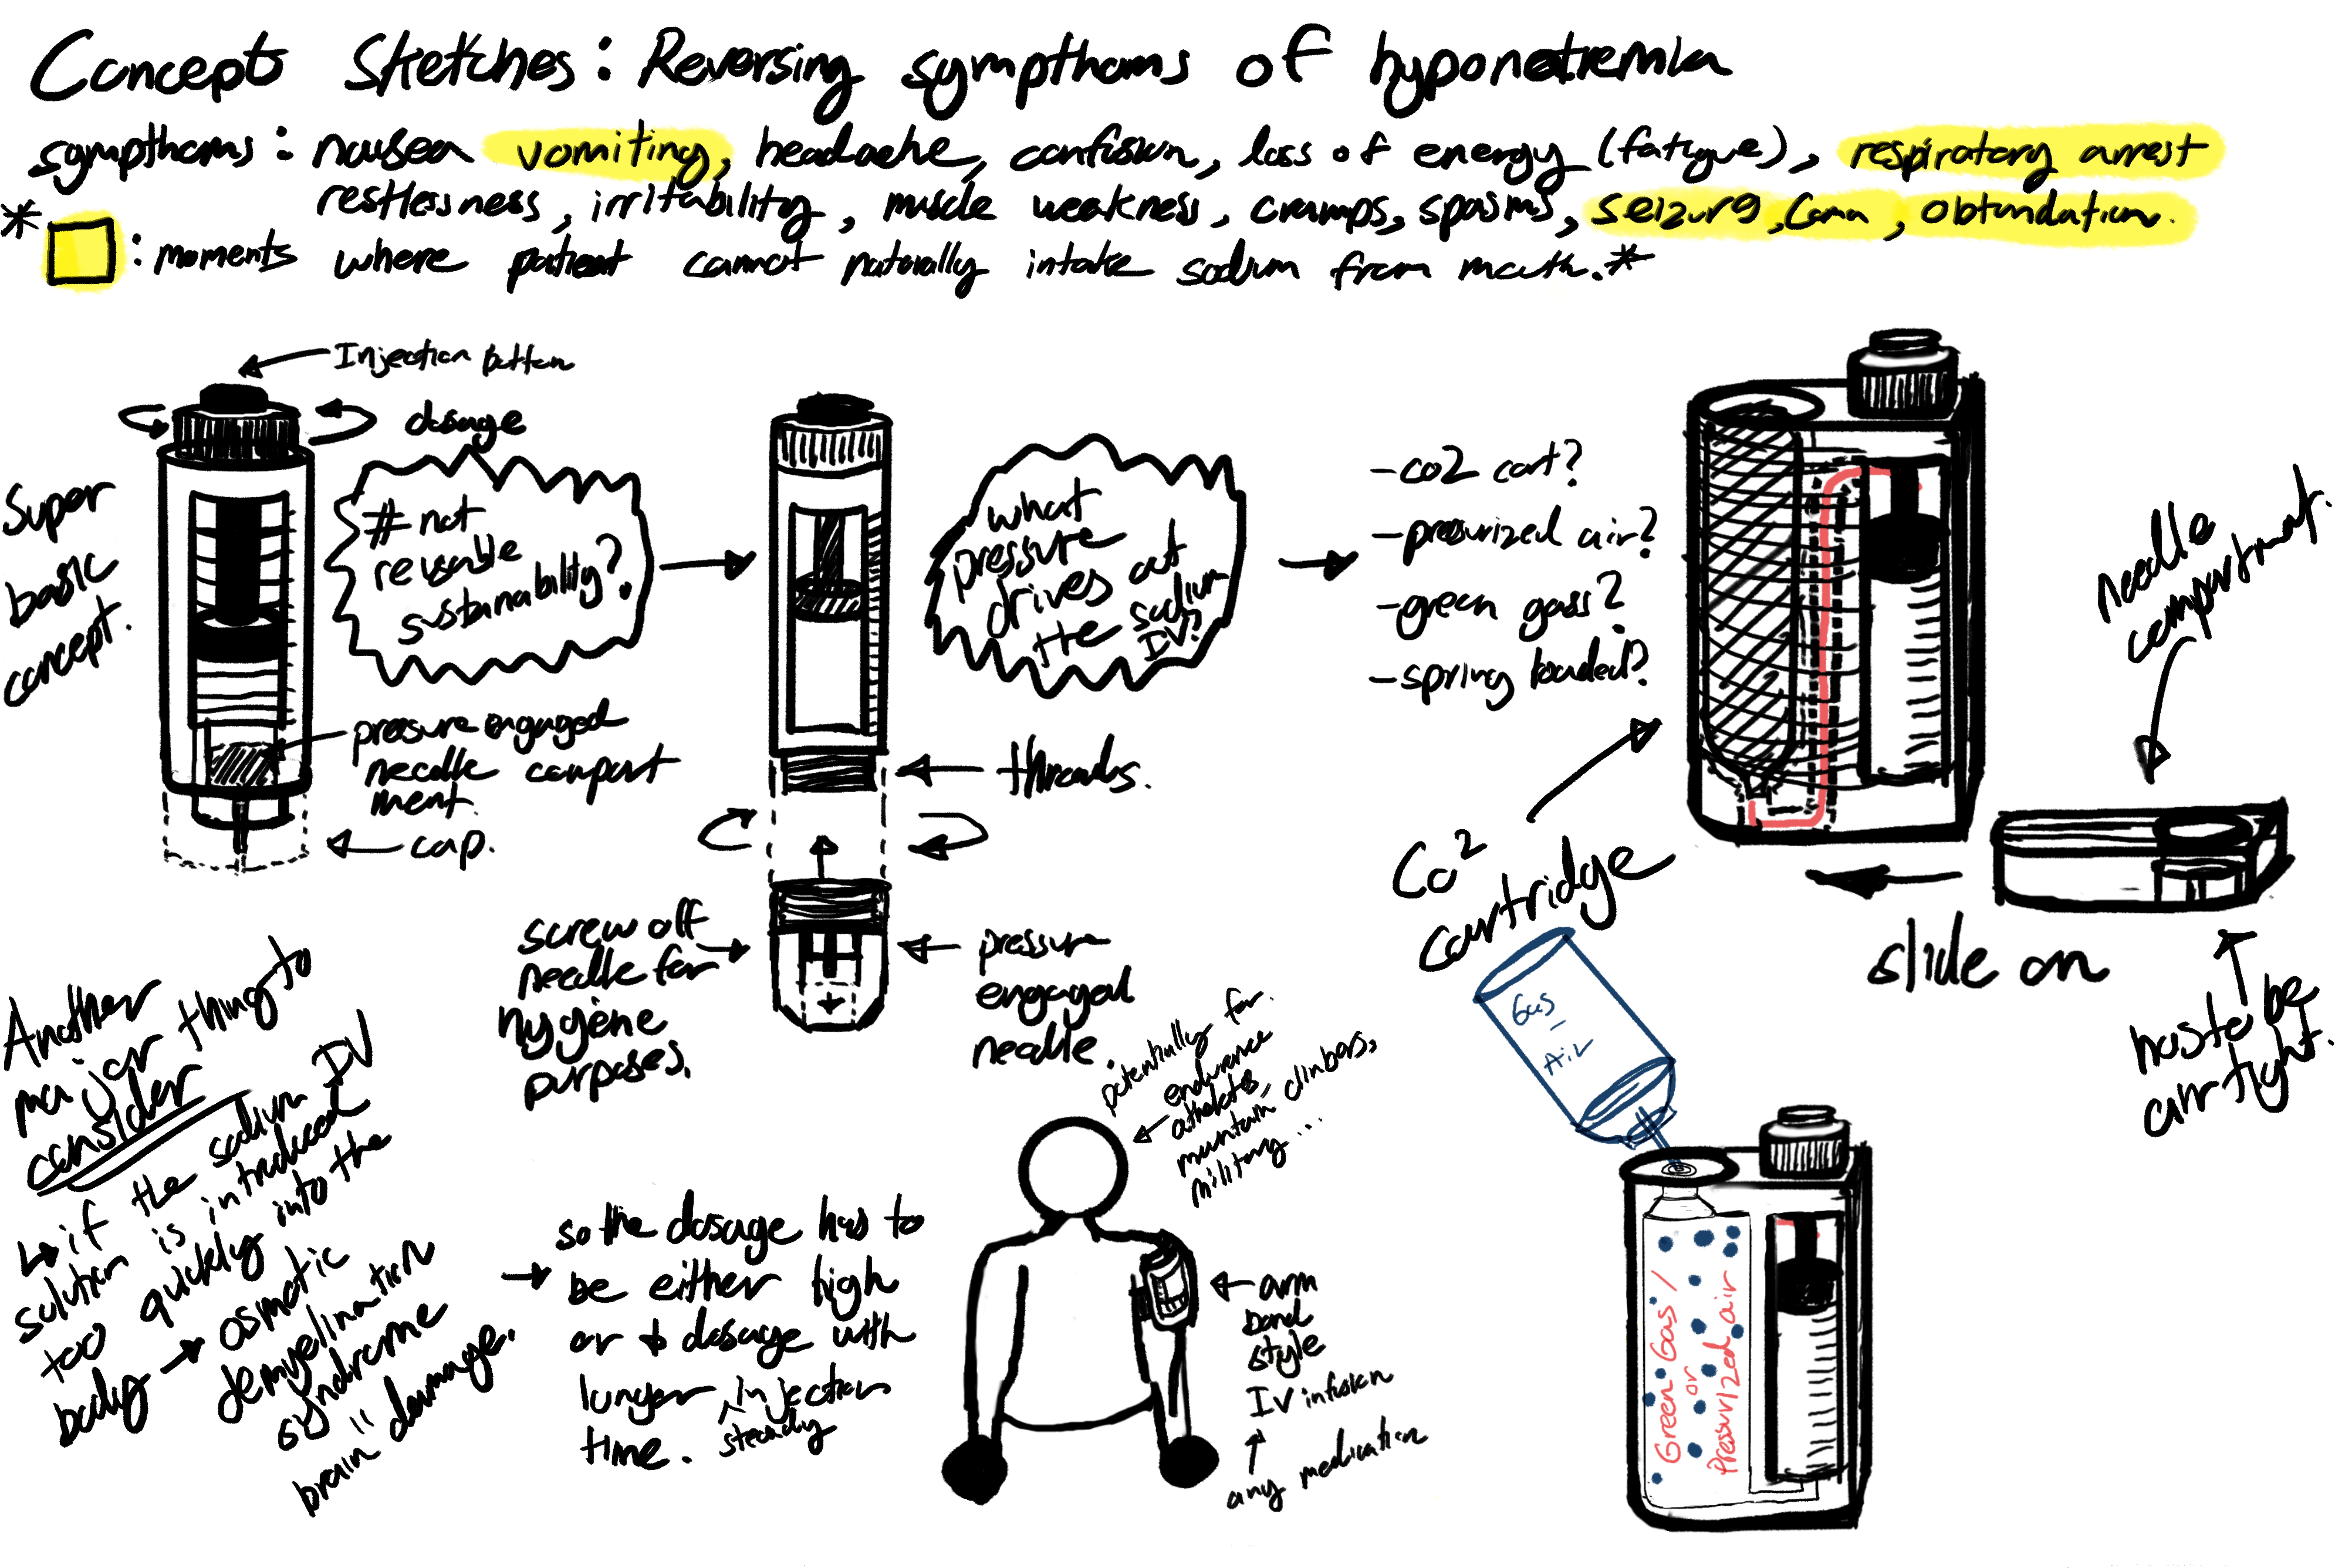 Concept Sketches: Reversing sympthoms of hyponatremia
sympthoms: nausea vomiting, headache, confusion, loss of energy (fatigue), respiratory arrest
restlessness, irritability, muscle weakness, cramps, spasms, seizure, Coma, obtundation.
* : moments where patient cannot naturally intake sodium from mouth.*
Injection button
dosage
Super
basic
concept.
# not
reusable
sustainability?
pressure engaged
needle compart
ment.
cap.
what
pressure
drives out
the sodium
IV?
threads.
screw off
needle for
hygiene
purposes.
pressure
engaged
needle.
- co2 cart?
- pressurized air?
- green gass?
- spring loaded?
Co2
cartridge
needle
compartment.
slide on
has to be
air tight.
Another
major thing to
consider
if the sodium IV
solution is introduced
too quickly into the
body → osmotic
demyelination
syndrome
brain " damage.
→ so the dosage has to
be either high
or dosage with
longer injection
steady
time.
potentially for
endurance
athletes,
mountain climbers,
military ...
arm
band
style
IV infusion
any medication
Gas
Air
Green Gas /
or
Pressurized air